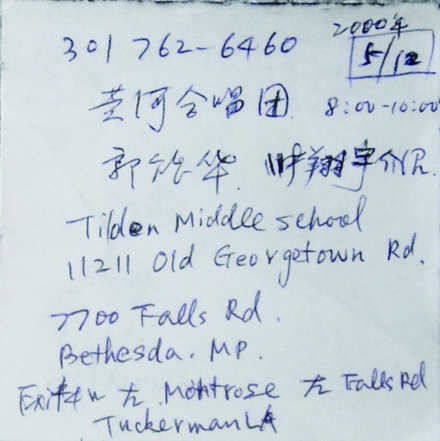 2000年
301 762-6460 5/12
黄河合唱团. 8:00-10:00
郭 华. 翔宇介绍.
Tilden Middle school
11211 Old Georgetown Rd.
7700 Falls Rd.
Bethesda. MD.
Exit 4 左 Montrose 左 Falls Rd
Tuckerman LA